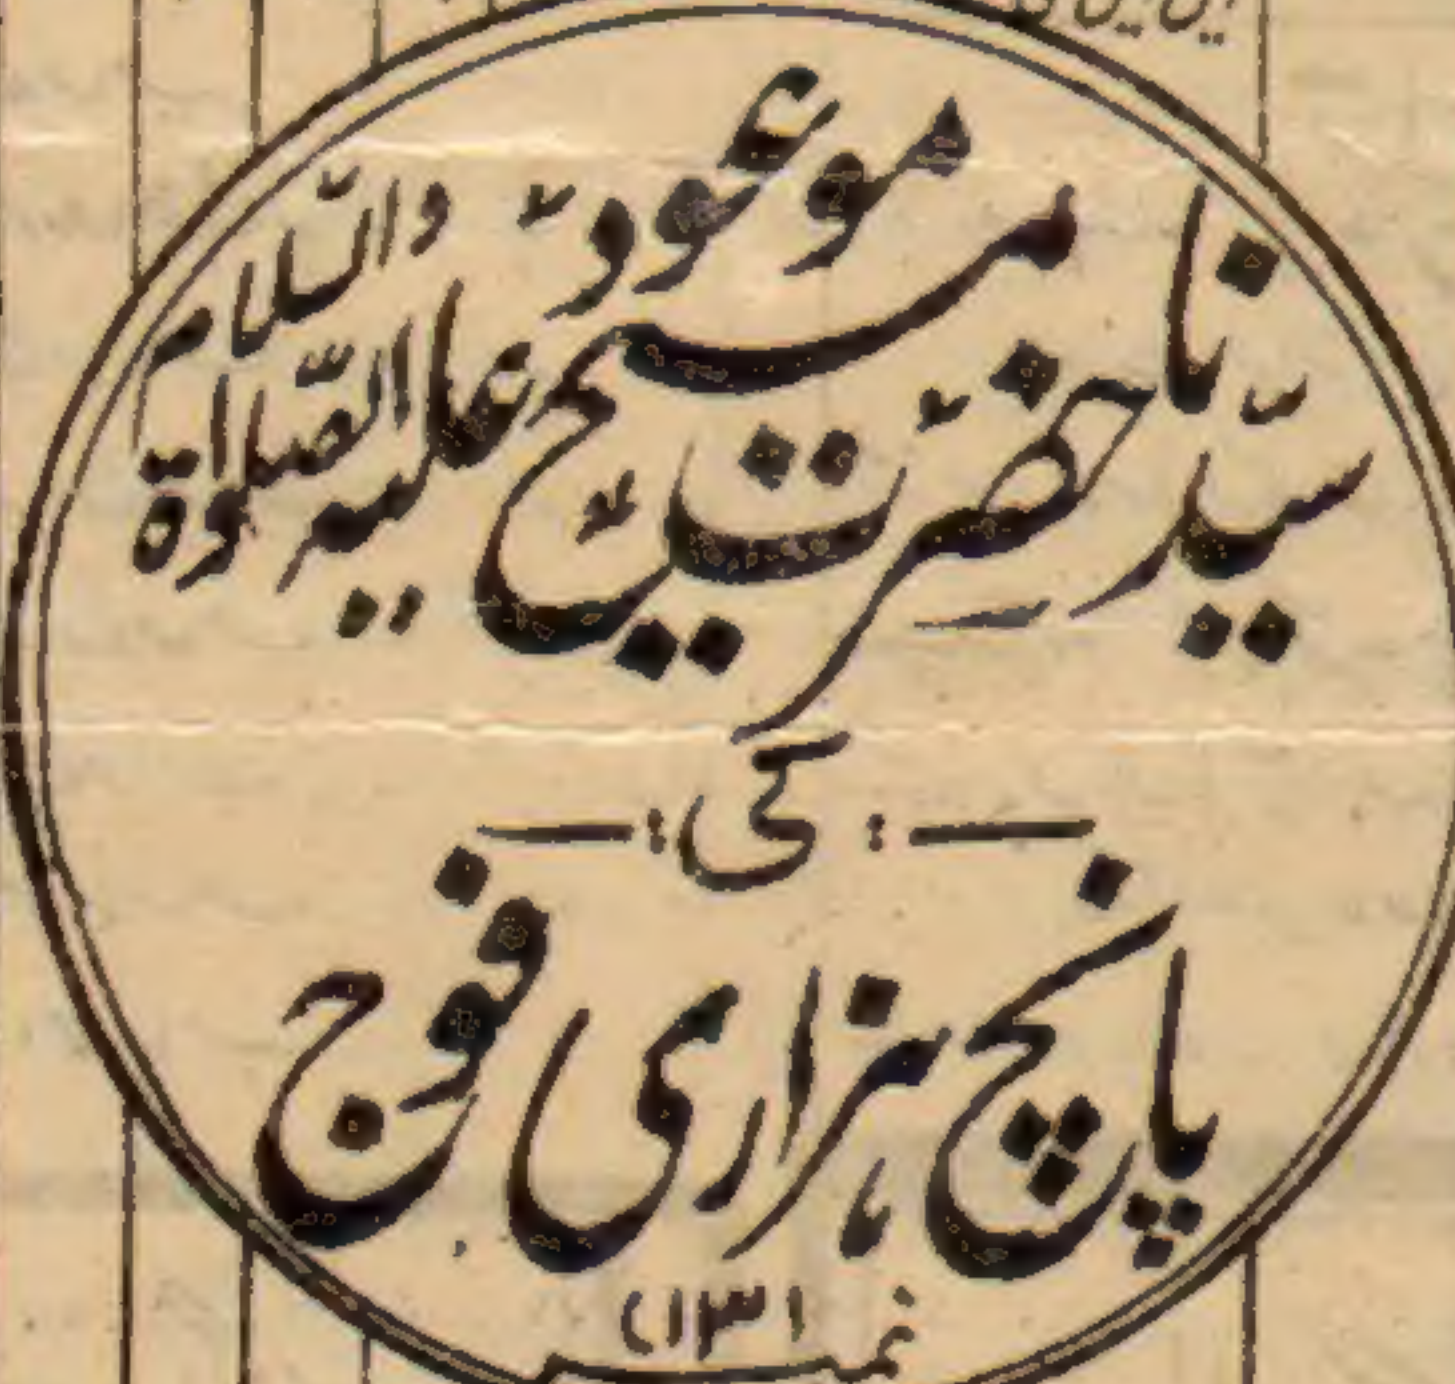 سیّدنا حضرت مسیح موعودؑ علیہ الصّلوٰۃ والسّلام
کی
پانچ ہزاری فوج
نمبر (۱۳۱)